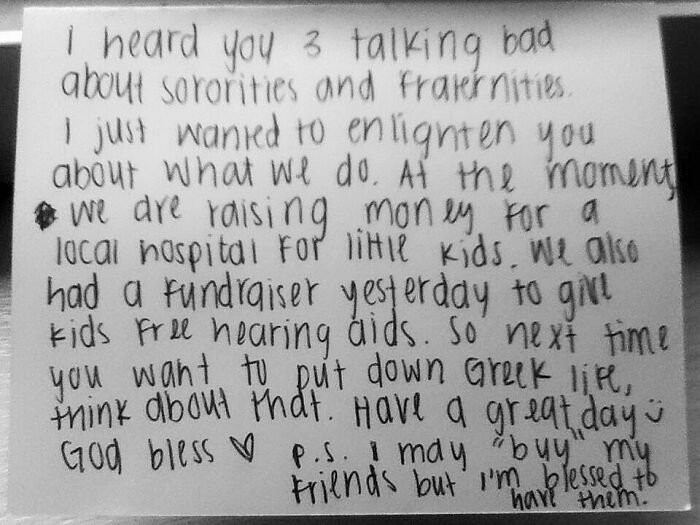 I heard you 3 talking bad
about sororities and fraternities.
I just wanted to enlighten you
about what we do. At the moment,
we are raising money for a
local hospital for little kids. We also
had a fundraiser yesterday to give
kids free hearing aids. So next time
you want to put down Greek life,
think about that. Have a great day :)
God bless ♡ P.S. I may "buy" my
friends but I'm blessed to
have them.